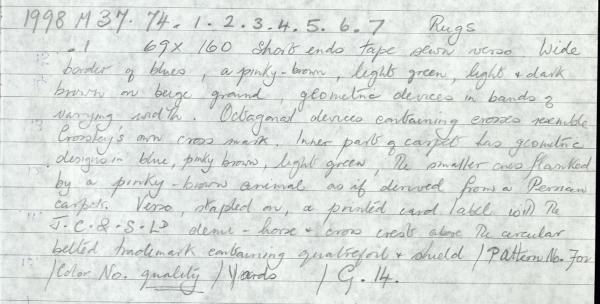 1998 M 37. 74. 1. 2. 3. 4. 5. 6. 7 Rugs
.1 69 x 160 Short ends tape sewn verso Wide
border of blues, a pinky-brown, light green, light & dark
brown on beige ground, geometric devices in bands of
varying width. Octagonal devices containing crosses resemble
Crossley's own cross mark. Inner part of carpet has geometric
designs in blue, pinky brown, light green, the smaller ones flanked
by a pinky-brown animal as if derived from a Persian
carpet. Verso, stapled on, a printed card label with the
J.C. & S. LD demi-horse & cross crests above the circular
belted trademark containing quatrefoil & shield / Pattern No. For
/ Color No. quality / Yards / G. 14.